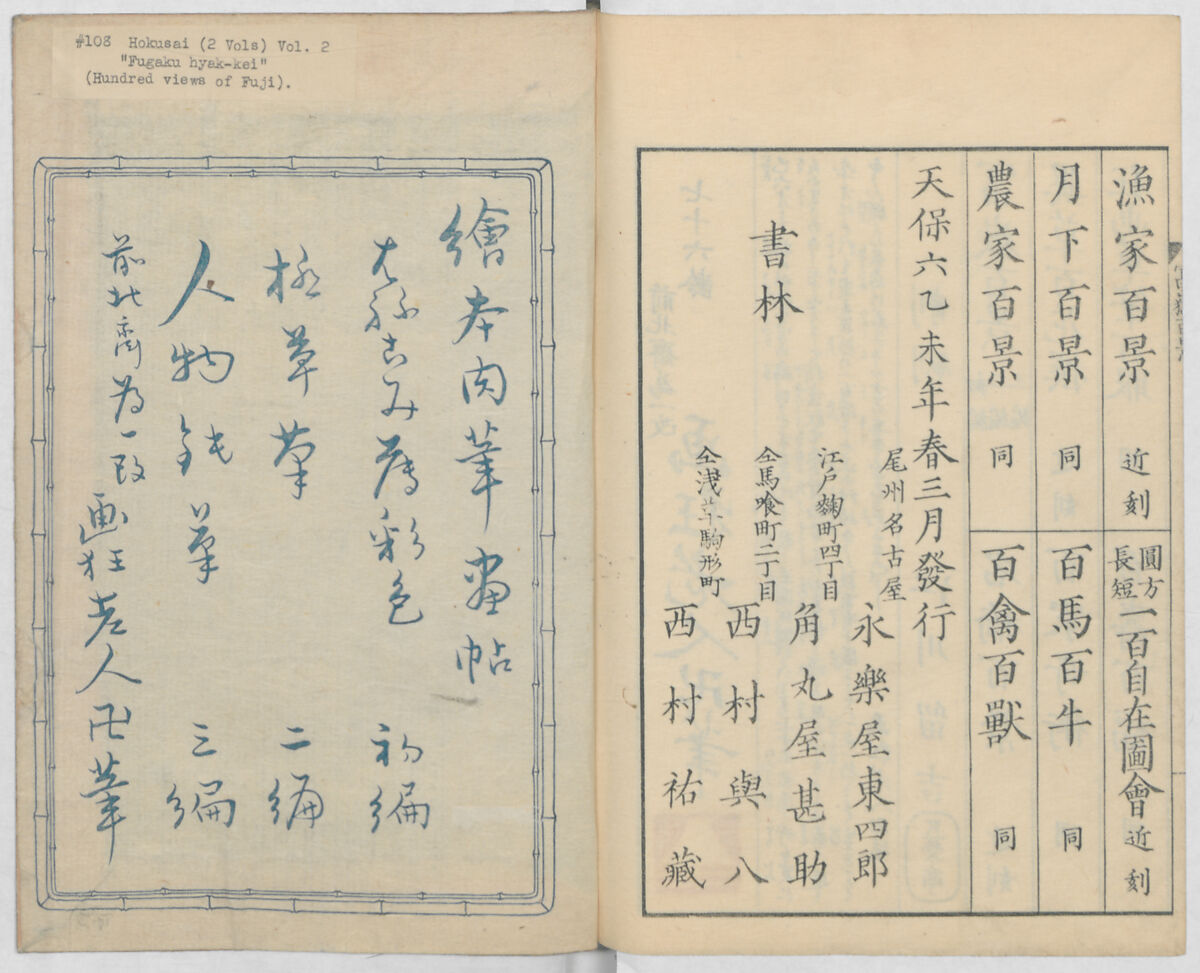 #108 Hokusai (2 Vols) Vol. 2
"Fugaku hyak-kei"
(Hundred views of Fuji).
漁家百景 近刻
圓方
長短
一百自在圖會 近刻
月下百景 同
百馬百牛 同
農家百景 同
百禽百獸 同
天保六乙未年春三月發行
書林
尾州名古屋 永樂屋東四郎
江戸麴町四丁目 角丸屋甚助
仝馬喰町二丁目 西村與八
仝浅草駒形町 西村祐藏
繪本肉筆畫帖
彩色 初編
極草筆 二編
人物 筆 三編
前北斎為一改 画狂老人卍筆